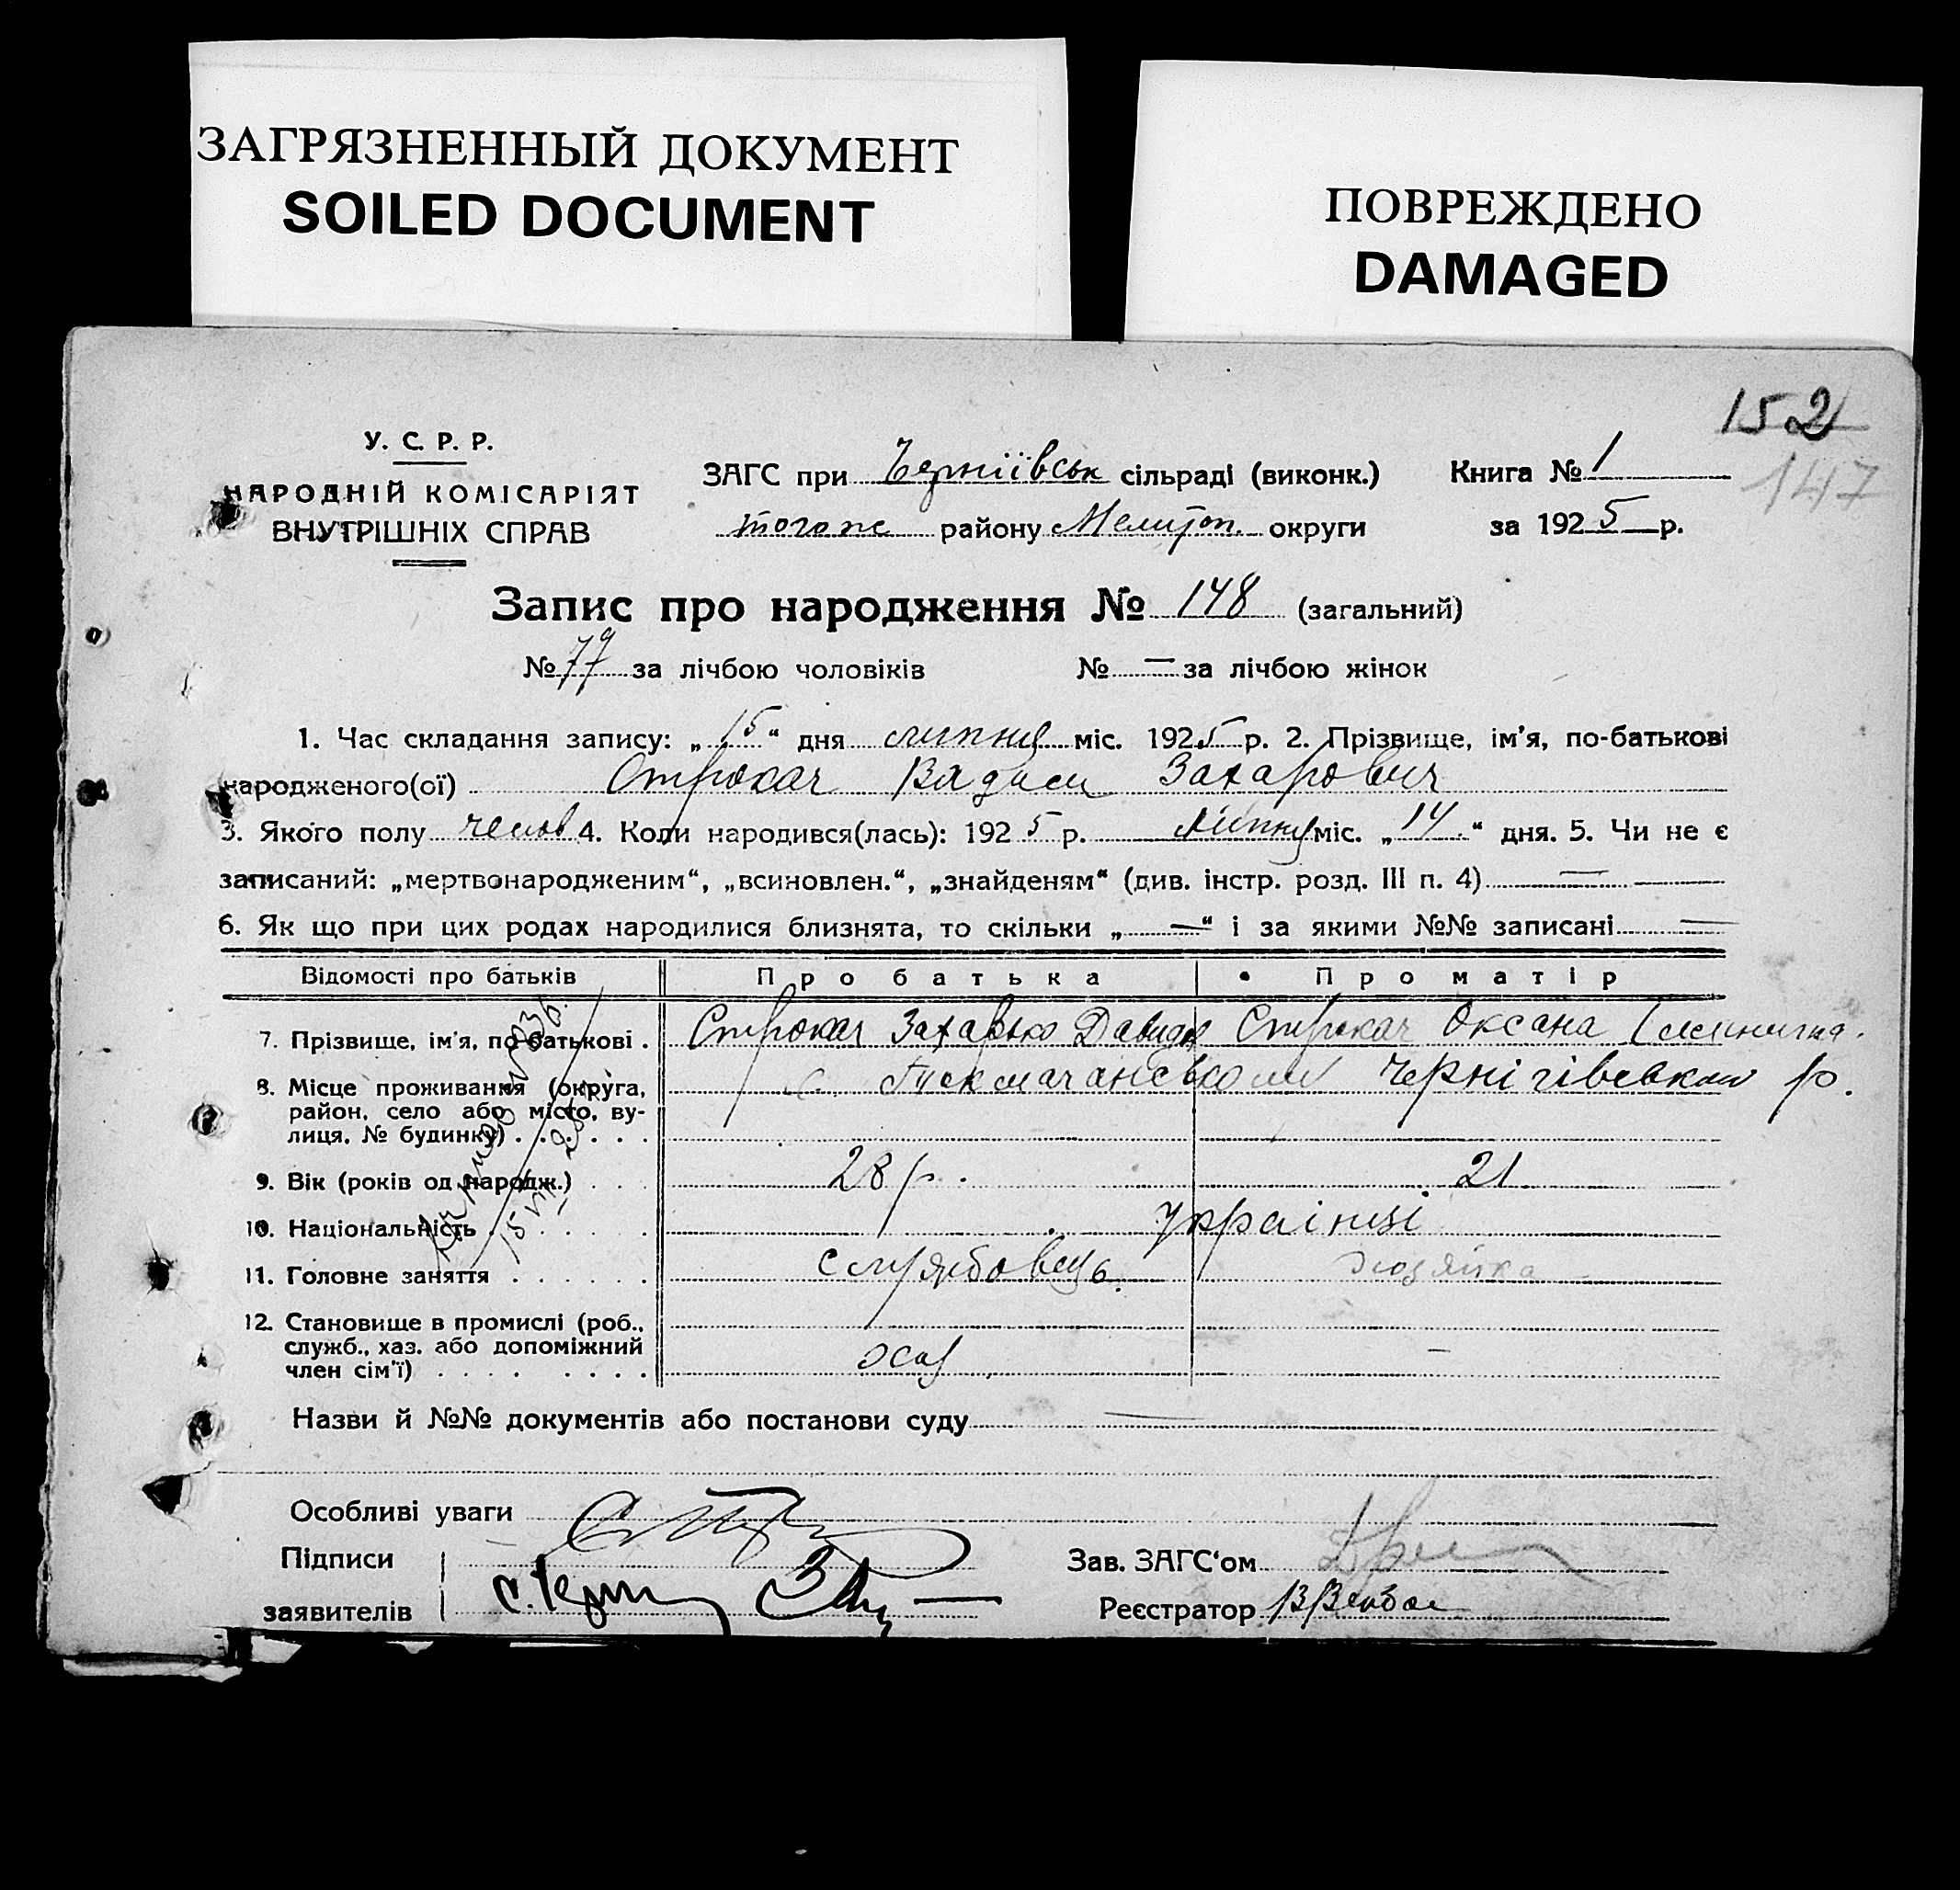 ЗАГРЯЗНЕННЫЙ ДОКУМЕНТ
SOILED DOCUMENT
ПОВРЕЖДЕНО
DAMAGED
152
147
У. С. Р. Р.
НАРОДНІЙ КОМІСАРІЯТ
ВНУТРІШНІХ СПРАВ
ЗАГС при сільраді (виконк.)
того же району Мелитоп. округи
Книга № 1
за 1925 р.
Запис про народження № 148 (загальний)
№ 77 за лічбою чоловіків № — за лічбою жінок
1. Час складання запису: „15“ дня липня міс. 1925 р. 2. Прізвище, ім'я, по-батькові
народженого(ої) Строкач Вадим Захарович
3. Якого полу челов 4. Коли народився(лась): 1925 р. Липня міс. „14“ дня. 5. Чи не є
записаний: „мертвонародженим“, „всиновлен.“, „знайденям“ (див. інстр. розд. III п. 4) —
6. Як що при цих родах народилися близнята, то скільки „—“ і за якими №№ записані —
Відомості про батьків Про батька Про матір
7. Прізвище, ім'я, по-батькові . Строкач Захарько Давидов Строкач Оксана
8. Місце проживання (округа,
район, село або місто, ву-
лиця, № будинку) . . . . . .
с. Чернігівського р.
9. Вік (років од народж.) . . . 28 р. 21
10. Національність . . . . . українці
11. Головне заняття . . . . . . службовець. хозяйка
12. Становище в промислі (роб.,
служб., хаз. або допоміжний
член сім'ї) . . . . . . . .
—
Назви й №№ документів або постанови суду —
Особливі уваги
Підписи
заявителів
Зав. ЗАГС‘ом
Реєстратор